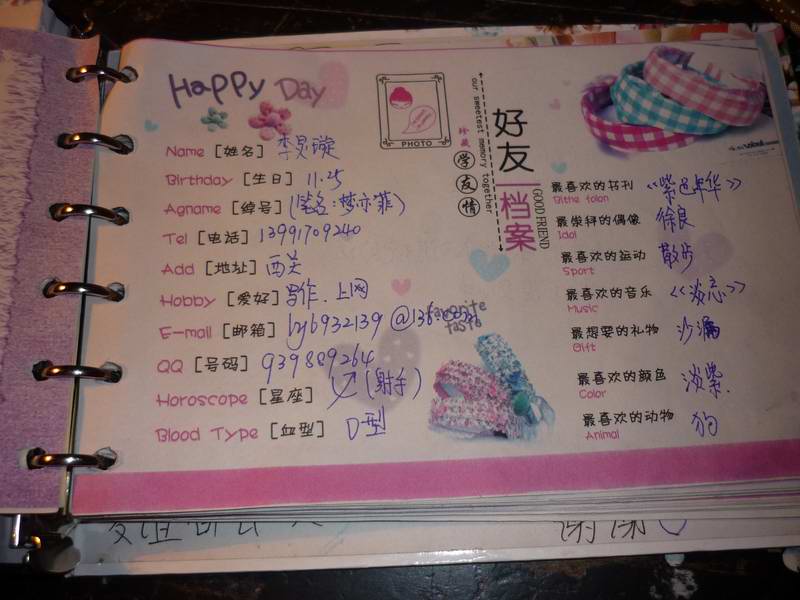 Happy Day
PHOTO
our sweetest memory together
珍藏 学友情
好友档案
GOOD FRIEND
Name [姓名] 李昊璇
Birthday [生日] 11.25
Agname [绰号] (笔名:梦亦菲)
Tel [电话] 13991709240
Add [地址] 西关
Hobby [爱好] 写作、上网
E-mail [邮箱] 6932139 @
favorite taste
QQ [号码] 939889264
Horoscope [星座] (射手)
Blood Type [血型] O型
最喜欢的书刊 《紫色年华》
Bithe folan
最崇拜的偶像 徐良
Idol
最喜欢的运动 散步
Sport
最喜欢的音乐 《淡忘》
Music
最想要的礼物 沙漏
Gift
最喜欢的颜色 淡紫.
Color
最喜欢的动物 狗
Animal
谢谢